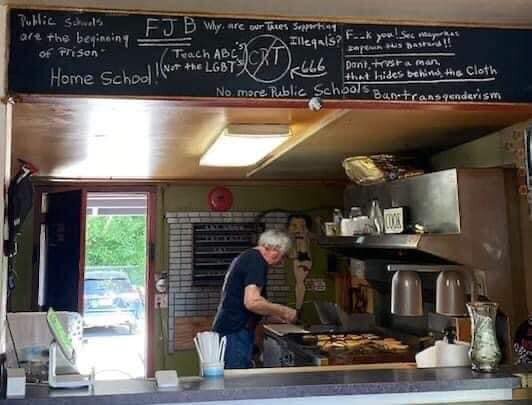 Public Schools
are the beginning
of Prison"
Home School!
FJB
(Teach ABC's
Not the LGBT's)
Why, are our Taxes Supporting
Illegals?
CRT
666
No more Public Schools
F--k you! Sec mayorkas
Impeach this Bastard!!
Dont, trust a man,
that hides behind, the Cloth
Ban-transgenderism
COOK